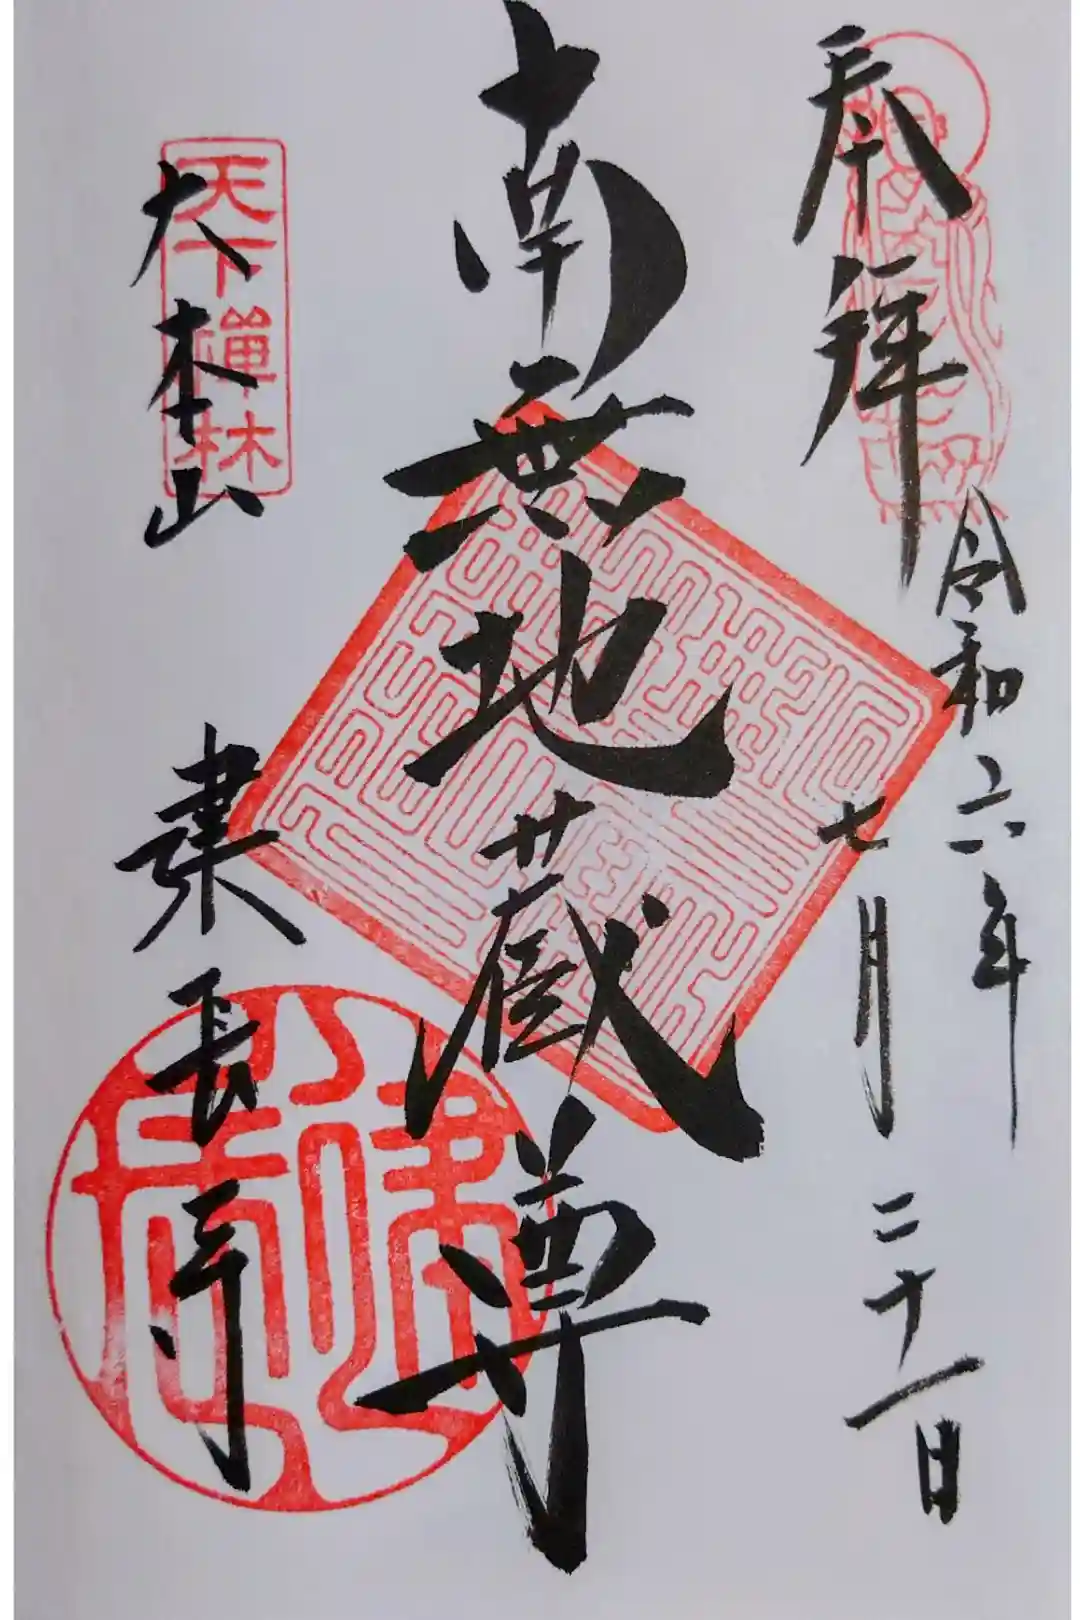 奉拝
令和六年
七月二十一日
南無地蔵尊
天下禅林
大本山
建長寺